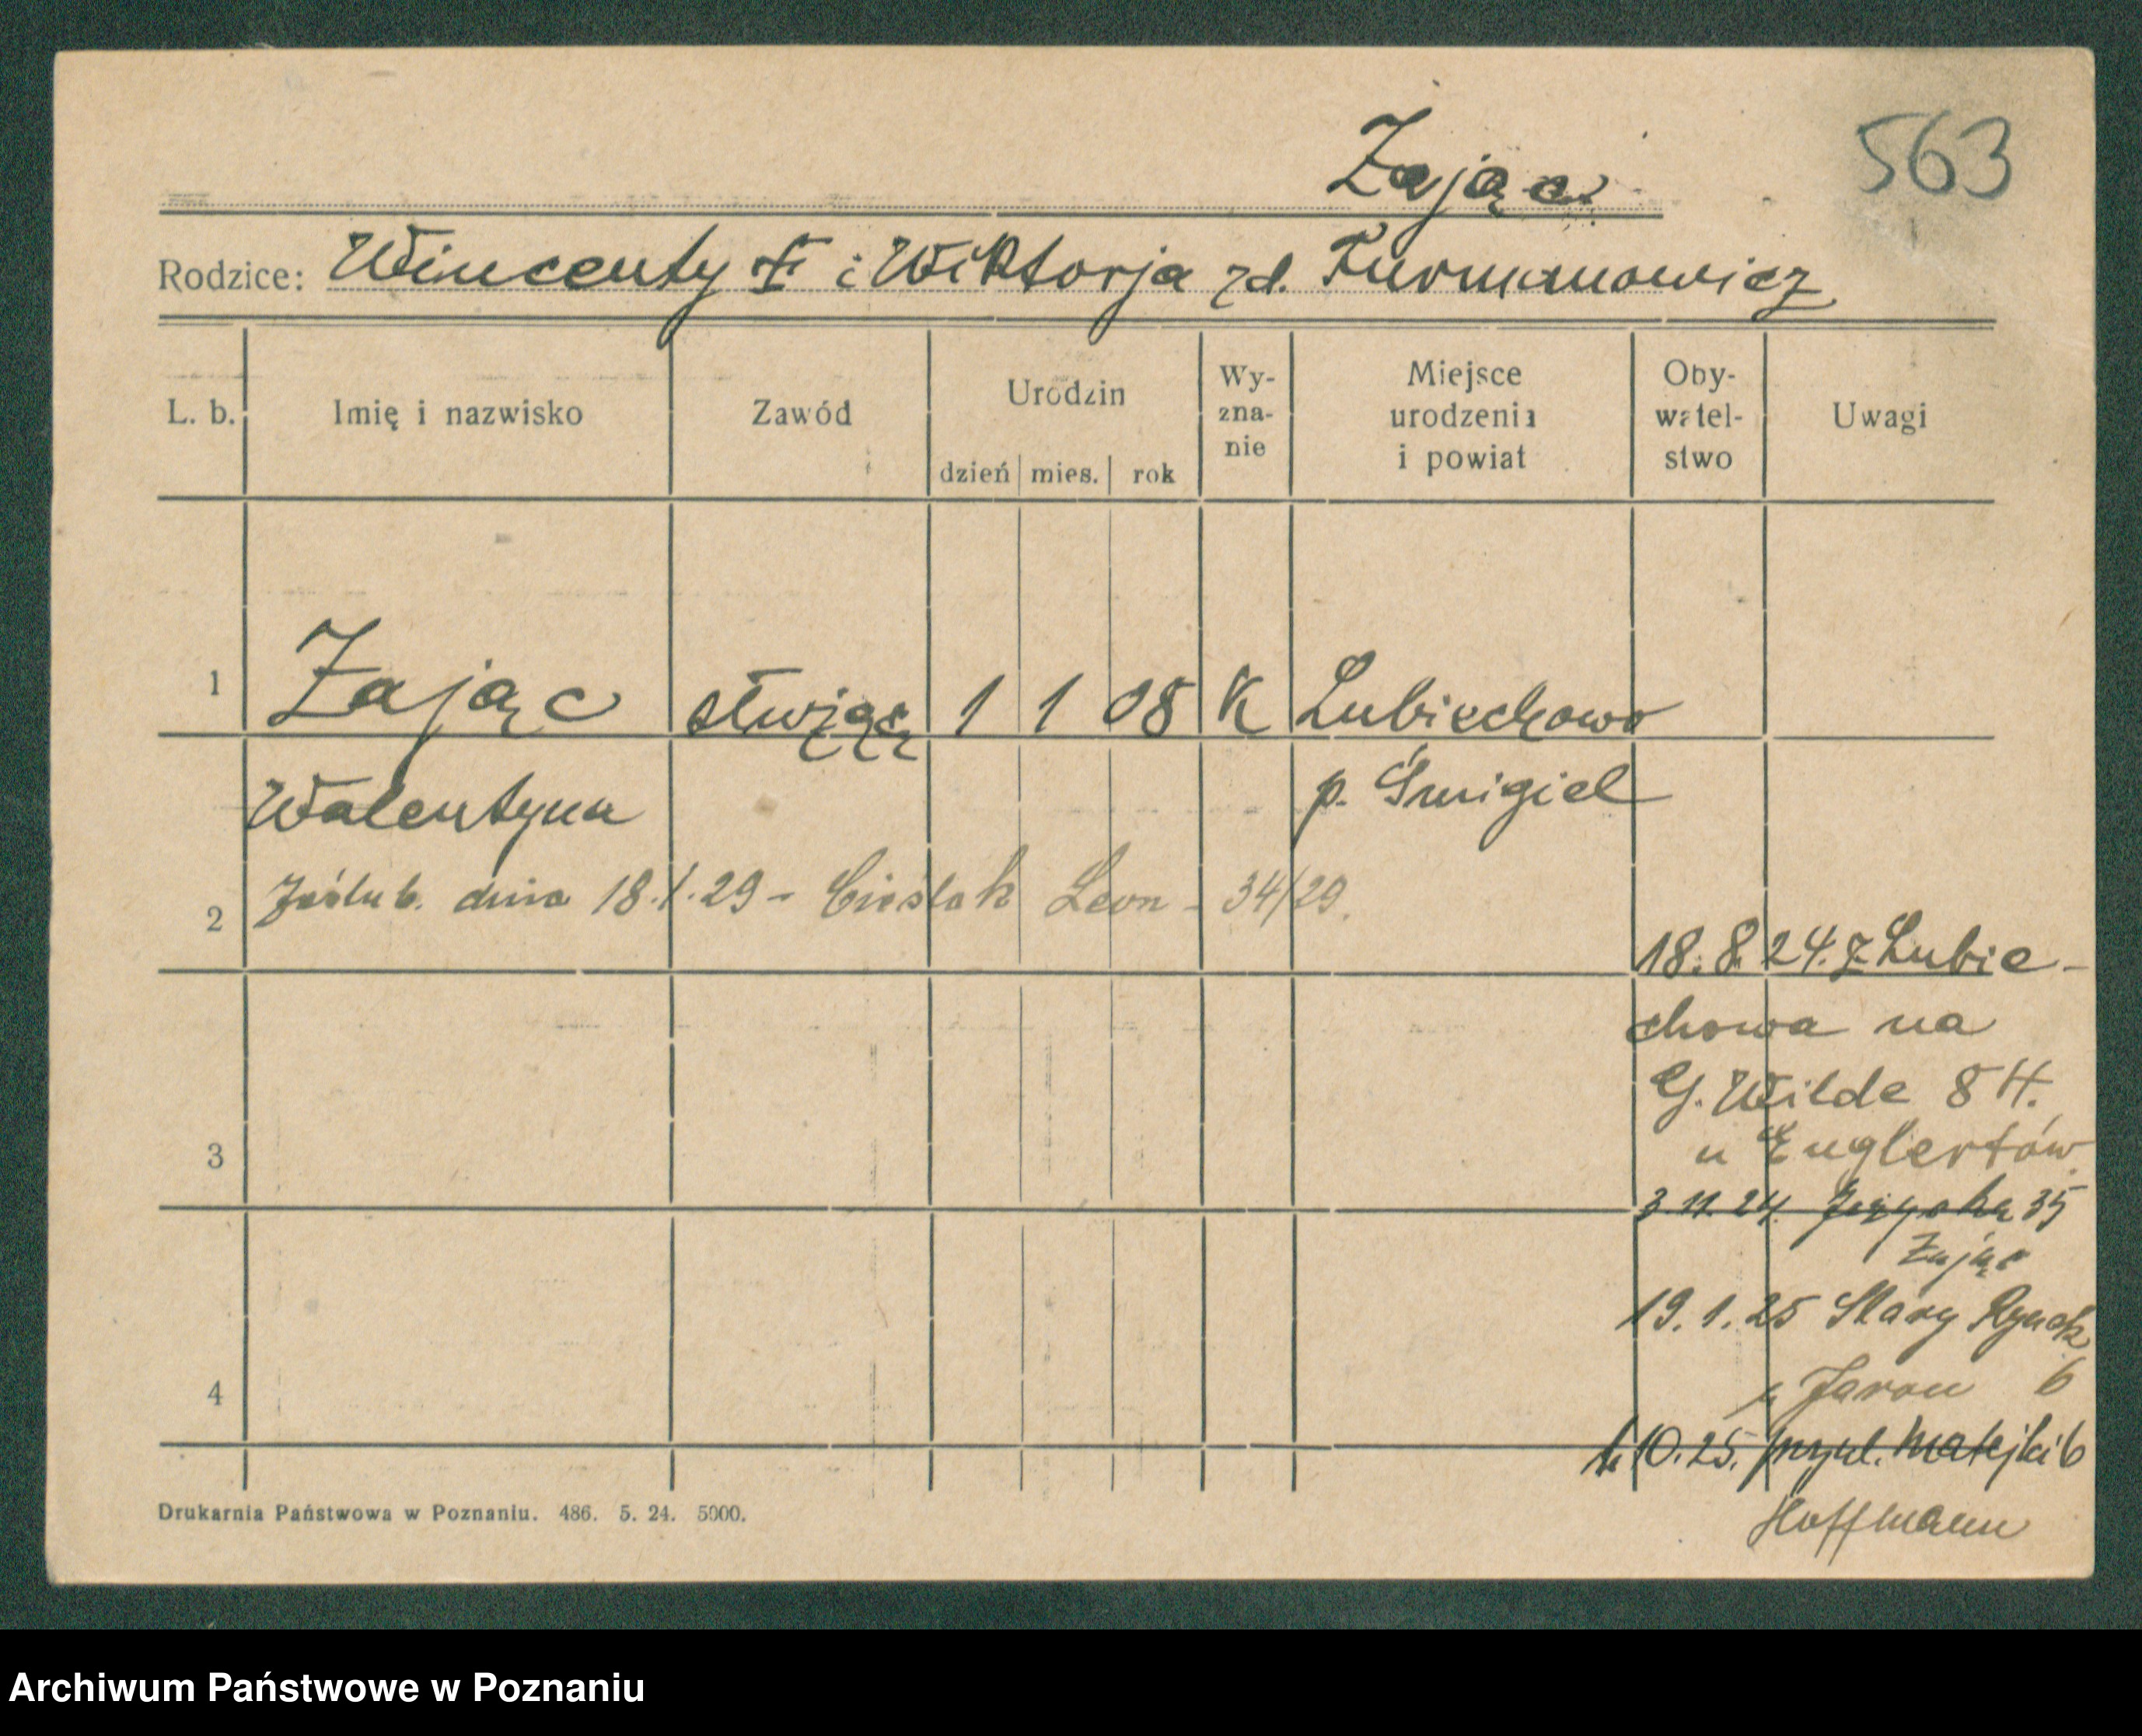 563
Zając
Rodzice: Wincenty † i Wiktorja zd. Furmanowicz
L. b. Imię i nazwisko Zawód Urodzin dzień mies. rok Wy-zna-nie Miejsce urodzenia i powiat Oby-watel-stwo Uwagi
1 Zając służąca 1 1 08 K Lubiechowo
Walentyna p. Śmigiel
2 Zaślub. dnia 18.1.29 - Cieślak Leon - 34/29.
18.8.24. z Lubie-
chowa na
G. Wilde 8 H.
u Englertów
3
3.11.24. 35
Zając
19.1.25 Stary Rynek
4 Jaron 6
10.25. Matejki 6
Hoffmann
Drukarnia Państwowa w Poznaniu. 486. 5. 24. 5000.
Archiwum Państwowe w Poznaniu